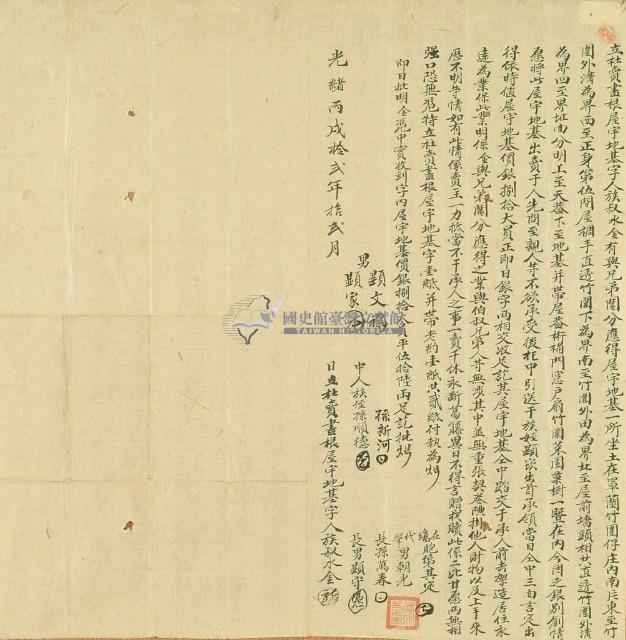 立杜賣盡根屋宇地基字人族叔水金有與兄弟鬮分應得屋宇地基一所坐土在罩蘭竹圍仔庄內南片東至竹
圍外溝為界西至正身第伍間屋棟平直透竹圍下為界南至竹圍外田為界北至屋前墻頭相廿直透竹圍外溝
為界四至界址面分明上至天蓋下至地基并帶屋蓋桁桷門窓戶扇竹圍菜園菓樹一暨在內今因乏銀別創情
愿將此屋宇地基出賣于人先問至親人等不欲承受後托中引送于族姪顯 出首承領當日仝中三面言定出
得依時值屋宇地基價銀捌拾大員正即日銀字兩相交收足訖其屋宇地基仝中踏交于承人前去架造居住永
遠為業保此業明係金與兄弟鬮分應得之業與伯叔兄弟人等無涉其中並無重張契卷典掛他人財物以及上手來
歷不明等情如有此情係賣主一力抵當不干承人之事一賣千休永斷葛藤異日不得言贈找贖此係二比甘愿兩無相
强口恐無憑特立杜賣盡根屋宇地基字壹紙并帶老約壹紙共貳紙付執為炤
即日批明仝憑中實收到字內屋宇地基價銀捌拾大員平伍拾陸兩足訖批炤
在塲胞弟其突
代筆男朝光
長孫萬春
長男顯宇
孫新河
中人族侄孫順德
男顯文
顯家
光緒丙戌拾弍年拾弍月 日立杜賣盡根屋宇地基字人族叔水金
國史館臺灣文獻館
TAIWAN HISTORICA